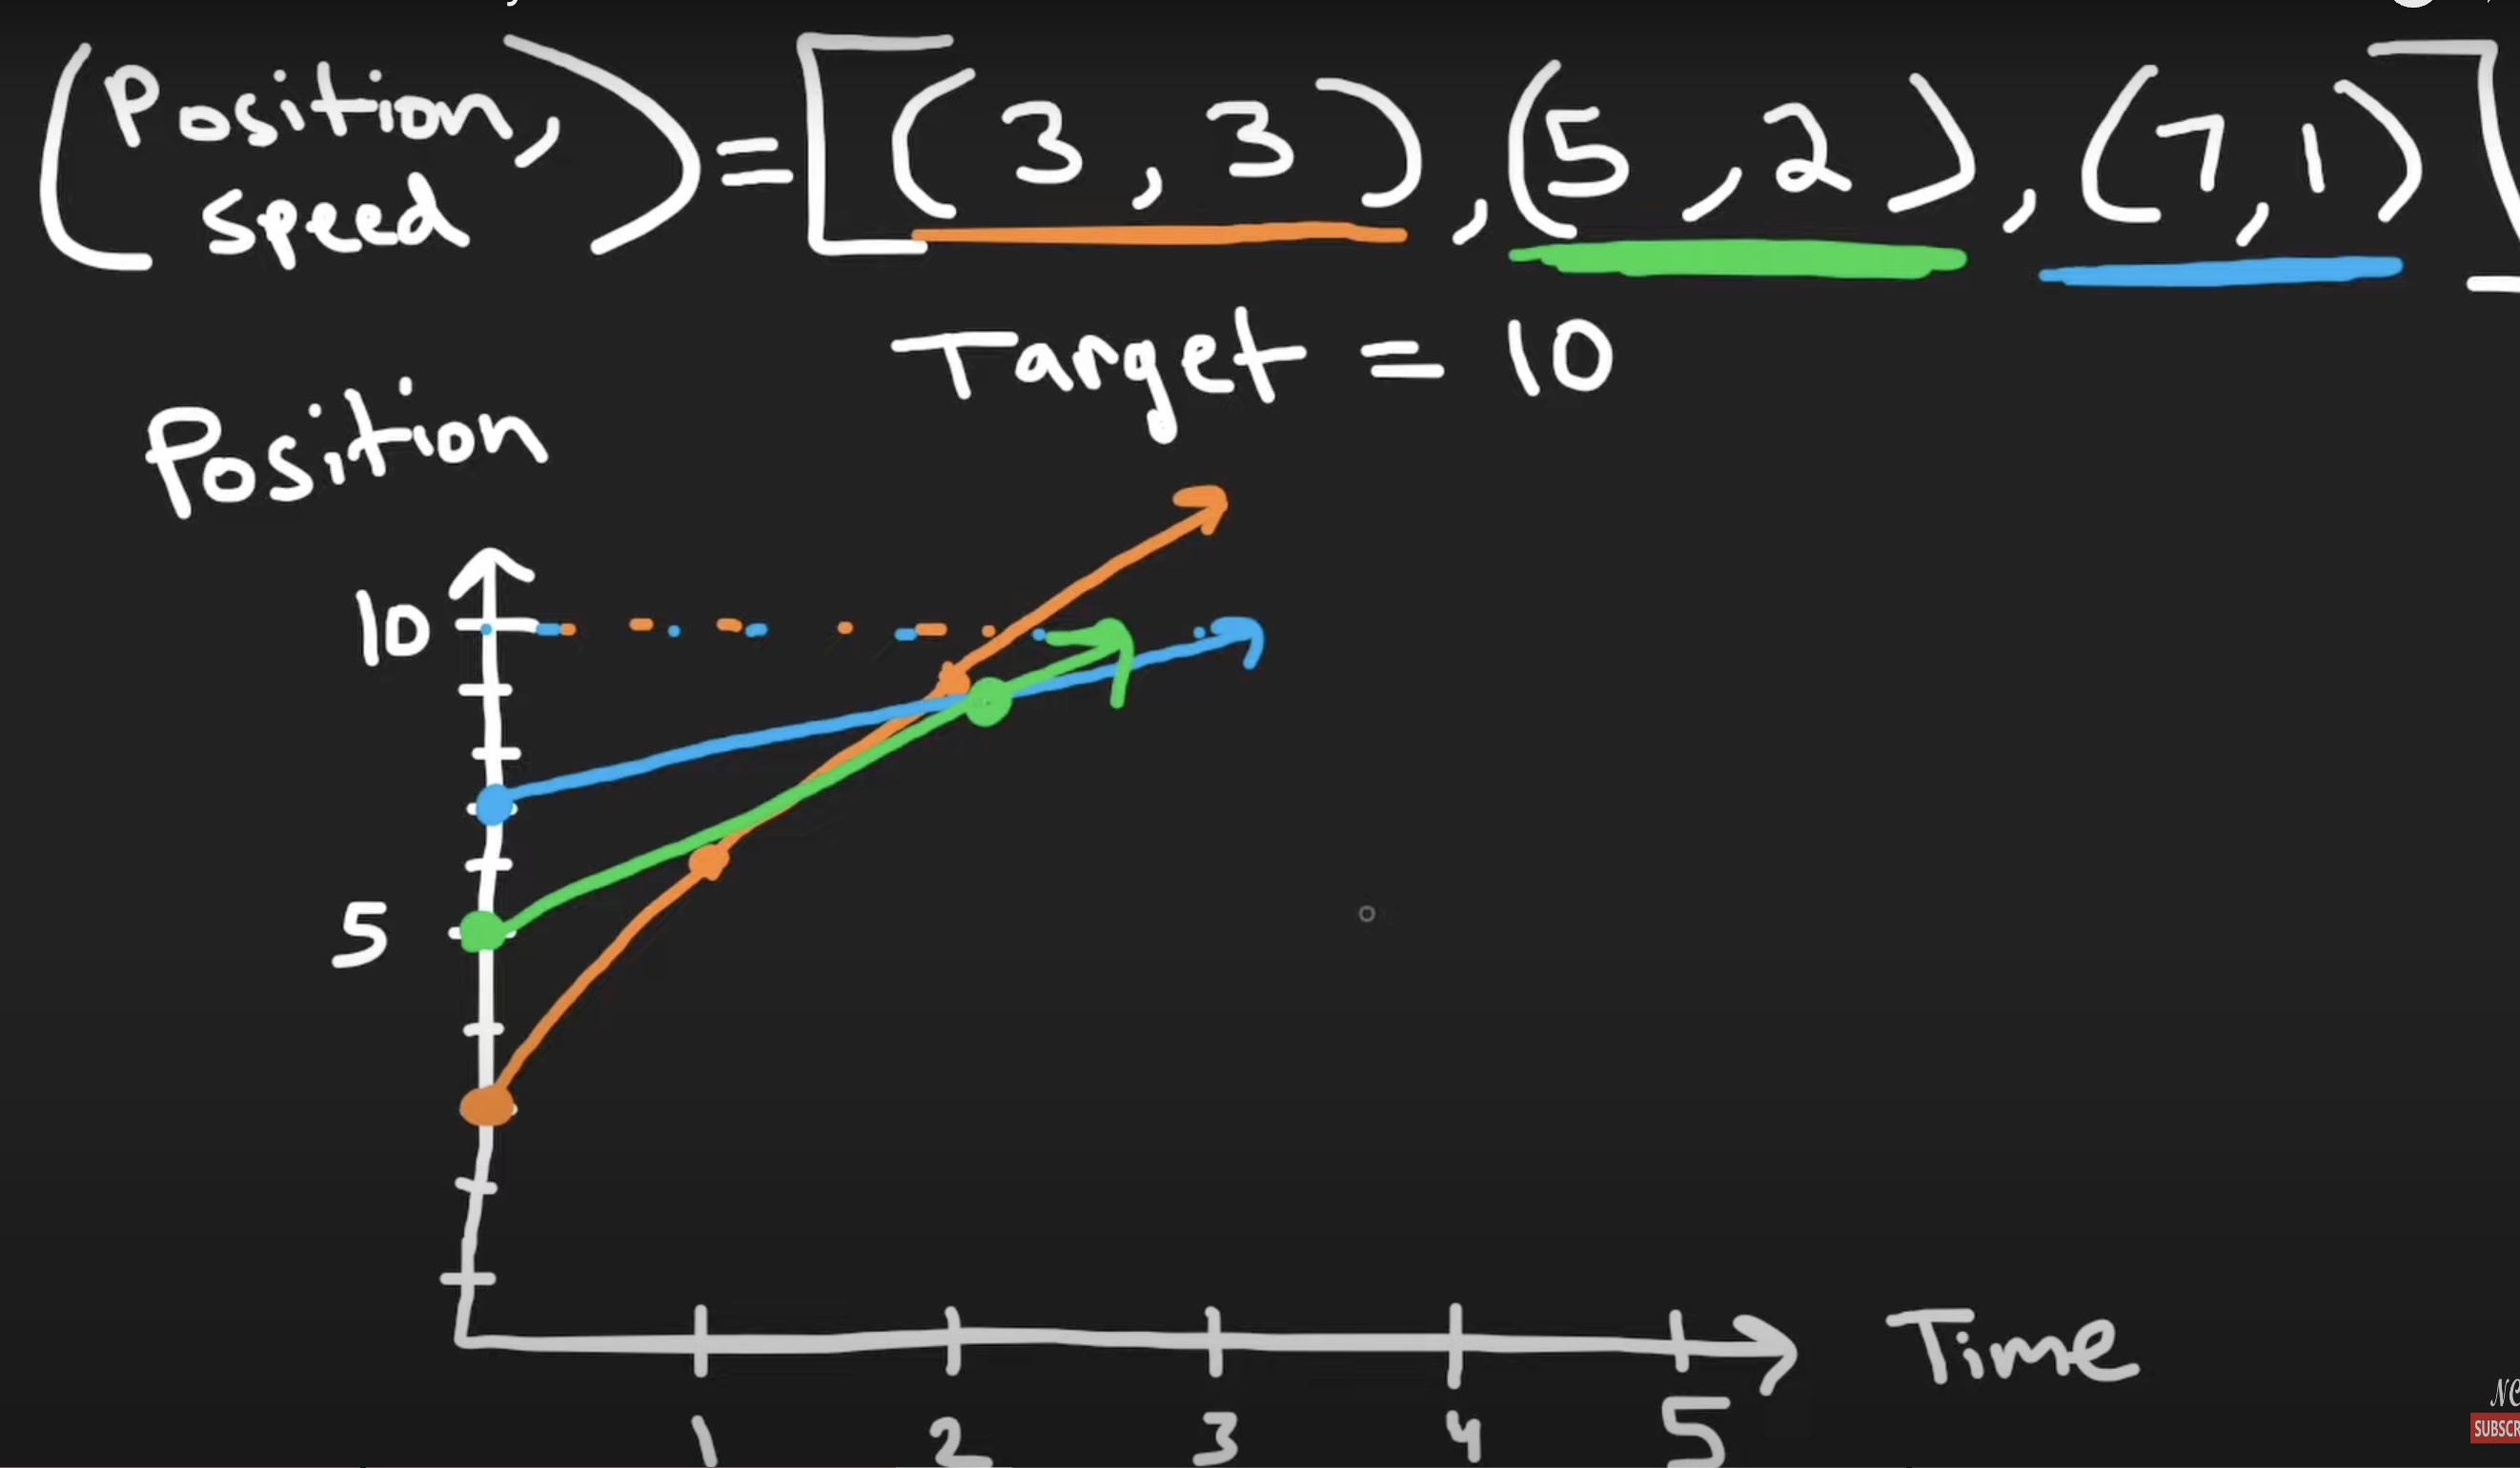 (Position, speed) = [(3, 3), (5, 2), (7, 1)]
Target = 10
Position
10
5
Time
1 2 3 4 5
NC
SUBSCR